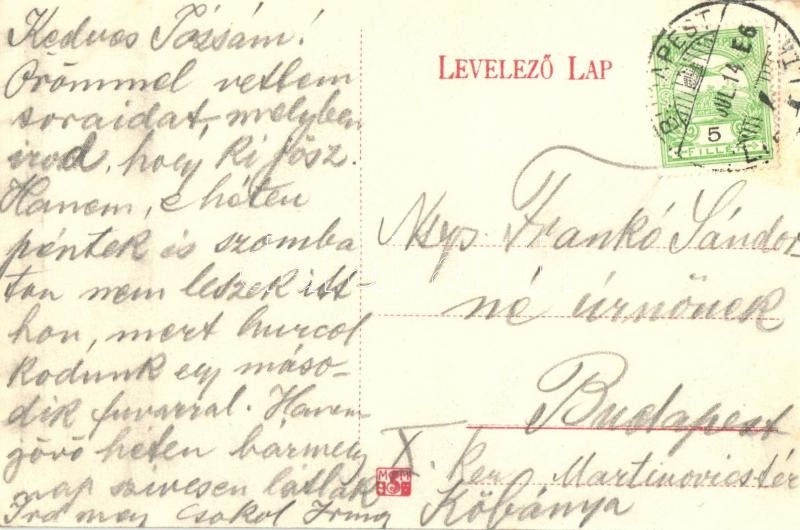 Kedves Rózsám!
Örömmel vettem
soraidat, melyben
irod, hogy ki jösz.
Hanem, e héten
péntek és szomba
ton nem leszek itt-
hon, mert hurcol
kodunk egy máso-
dik fuvarral. Hanem
jövö héten bármely
nap szivesen látlak
Ird meg csokol Irma
LEVELEZŐ LAP
BUDAPEST
JUL. 14 E6
5
FILLÉR
Nsgs. Frankó Sándor
né úrnőnek
Budapest
X. ker Martinovicstér
Kőbánya